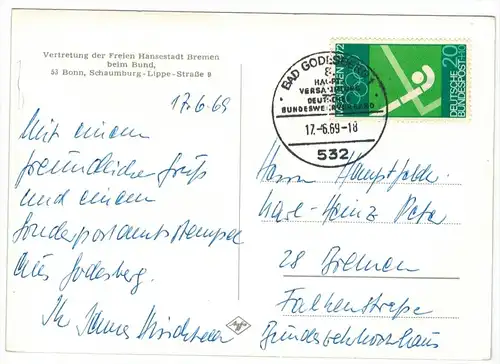 Vertretung der Freien Hansestadt Bremen
beim Bund,
53 Bonn, Schaumburg-Lippe-Straße 8
17.6.69
Mit einem
freundlichen Gruß
und einem
Sonderpostamtsstempel
aus Godesberg.
Ihr
BAD GODESBERG
8.
HAUPT-
VERSAMMLUNG
DEUTSCHER
BUNDESWEHRVERBAND
17.-6.69-18
532
1972
20
DEUTSCHE
BUNDESPOST
Herrn Hauptfeldw.
Karl-Heinz Peter
28 Bremen
Falkenstraße
Bundeswehrhochhaus
Agfa